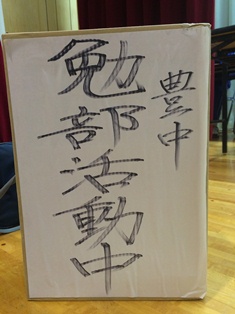 豊中
勉部活動中